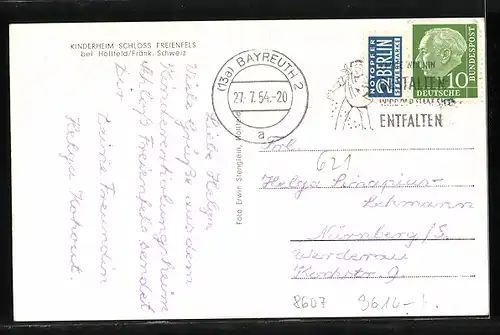 KINDERHEIM SCHLOSS FREIENFELS
bei Hollfeld/Fränk. Schweiz
Liebe Helga
Viele Grüße aus dem
Kindererholungsheim
Schloß Freienfels sendet
Dir
Deine Freundin
Helga Kohout.
Foto Erwin Stenglein,
(13a) BAYREUTH 2
27. 7. 54.-20
a
NOTOPFER
2 BERLIN
STEUERMARKE
10
DEUTSCHE
BUNDESPOST
ENTFALTEN
621
Frl.
Helga
Lehmann
Nürnberg/S.
Werderau
8607
9614